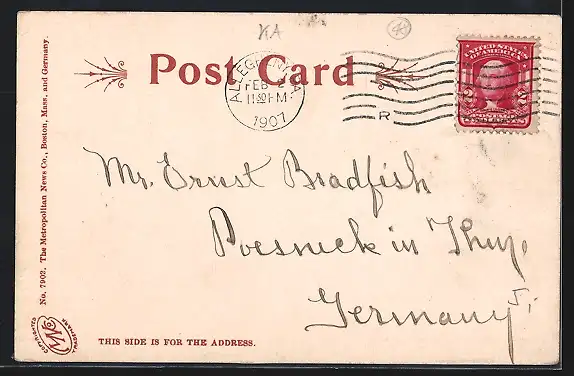 KA
Post Card
ALLEGHENY, PA.
FEB 2
11 30 PM
1907
R
UNITED STATES
OF AMERICA
2 2
POSTAGE
Mr. Ernst Bradfish
Poesneck in Thur.
Germany
No. 7902. The Metropolitan News Co., Boston, Mass. and Germany.
COPYRIGHTED
TRADEMARK
THIS SIDE IS FOR THE ADDRESS.